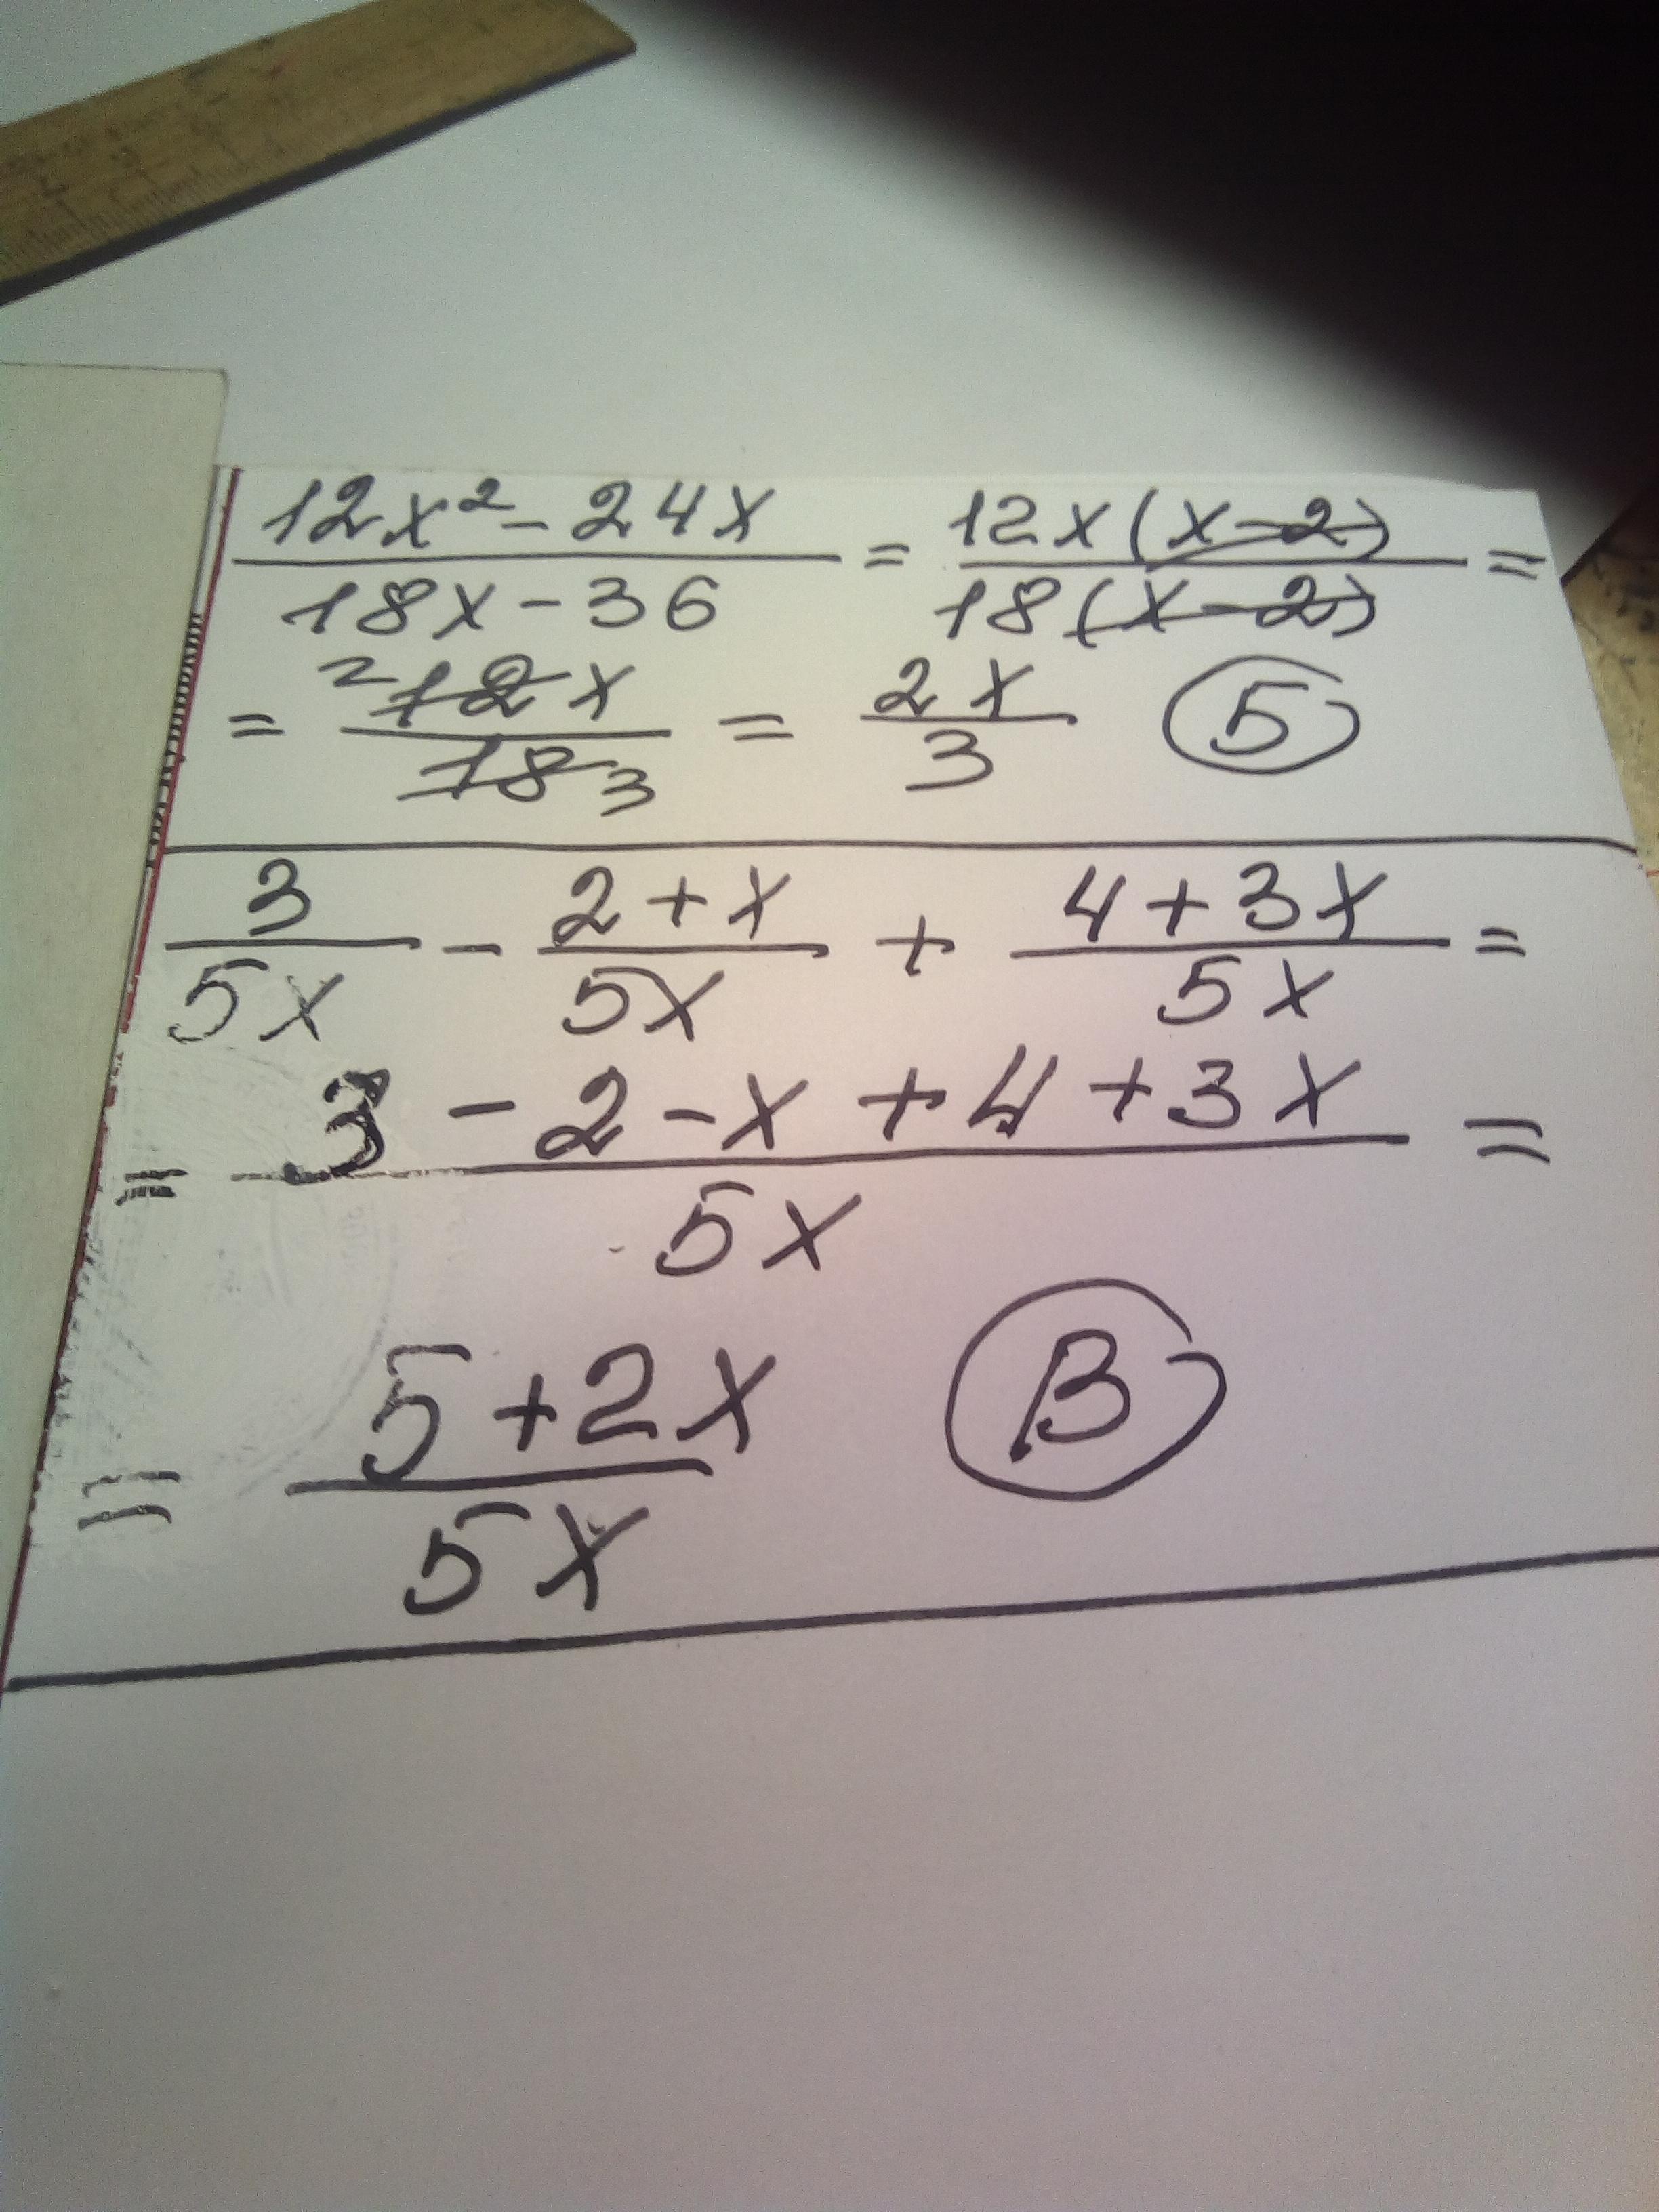 12x² - 24x / 18x - 36 = 12x(x-2) / 18(x-2) =
= ²12x / 18 3 = 2x / 3 Б
3 / 5x - 2+x / 5x + 4+3x / 5x =
= 3 - 2 - x + 4 + 3x / 5x =
= 5+2x / 5x В